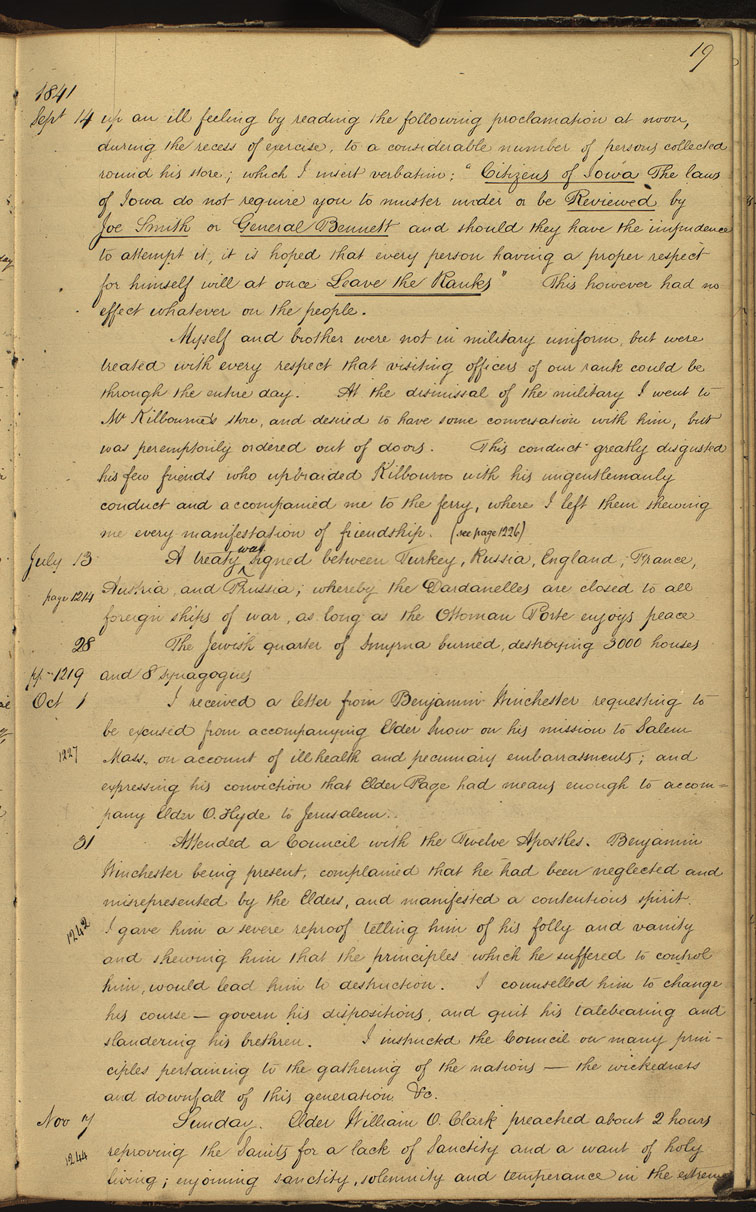 19
1841
Sept 14 up an ill feeling by reading the following proclamation at noon,
during the recess of exercise, to a considerable number of persons collected
round his store; which I insert verbatim; "Citizens of Iowa The laws
of Iowa do not require you to muster under or be Reviewed by
Joe Smith or General Bennett and should they have the impudence
to attempt it, it is hoped that every person having a proper respect
for himself will at once Leave the Ranks" This however had no
effect whatever on the people.
Myself and brother were not in military uniform, but were
treated with every respect that visiting officers of our rank could be
through the entire day. At the dismissal of the military I went to
Mr Kilbourne's store, and desired to have some conversation with him, but
was peremptorily ordered out of doors. This conduct greatly disgusted
his few friends who upbraided Kilbourn with his ungentlemanly
conduct and accompanied me to the ferry, where I left them shewing
me every manifestation of friendship. (see page 1226)
July 13 A treaty was signed between Turkey, Russia, England, France,
page 1214 Austria, and Prussia; whereby the Dardanelles are closed to all
foreign ships of war, as long as the Ottoman Porte enjoys peace
28 The Jewish quarter of Smyrna burned, destroying 3000 houses
pp-1219 and 8 synagogues
Oct 1 I received a letter from Benjamin Winchester requesting to
be excused from accompanying Elder Snow on his mission to Salem
1227 Mass., on account of ill health and pecuniary embarrassments; and
expressing his conviction that Elder Page had means enough to accom-
pany Elder O. Hyde to Jerusalem.
31 Attended a Council with the Twelve Apostles. Benjamin
Winchester being present, complained that he had been neglected and
misrepresented by the Elders, and manifested a contentious spirit.
1242 I gave him a severe reproof telling him of his folly and vanity
and shewing him that the principles which he suffered to control
him, would lead him to destruction. I counselled him to change
his course — govern his dispositions, and quit his talebearing and
slandering his brethren. I instructed the Council on many prin-
ciples pertaining to the gathering of the nations — the wickedness
and downfall of this generation &c.
Nov 7 Sunday. Elder William O. Clark preached about 2 hours
1244 reproving the Saints for a lack of Sanctity and a want of holy
living; enjoining sanctity, solemnity and temperance in the extreme